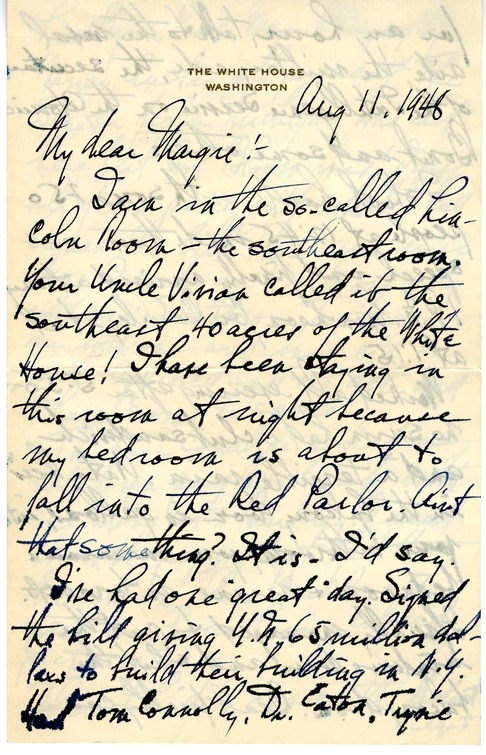 THE WHITE HOUSE
WASHINGTON
Aug 11, 1948
My dear Margie!-
I am in the so-called Lin-
coln Room - the southeast room.
Your Uncle Vivian called it the
southeast 40 acres of the White
House! I have been staying in
this room at night because
my bedroom is about to
fall into the Red Parlor. Aint
that something? It is - I'd say.
I've had one "great" day. Signed
the bill giving U.N. 65 million dol-
lars to build their building in N.Y.
Had Tom Connolly, Dr. Eaton,